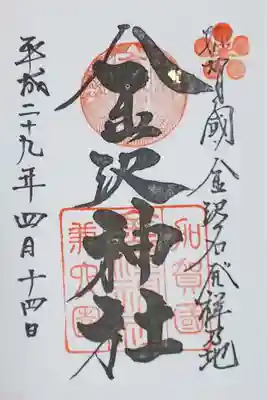 加賀國金沢名発祥之地
金沢神社
平成二十九年四月十四日
加賀國
金沢神社
兼六園